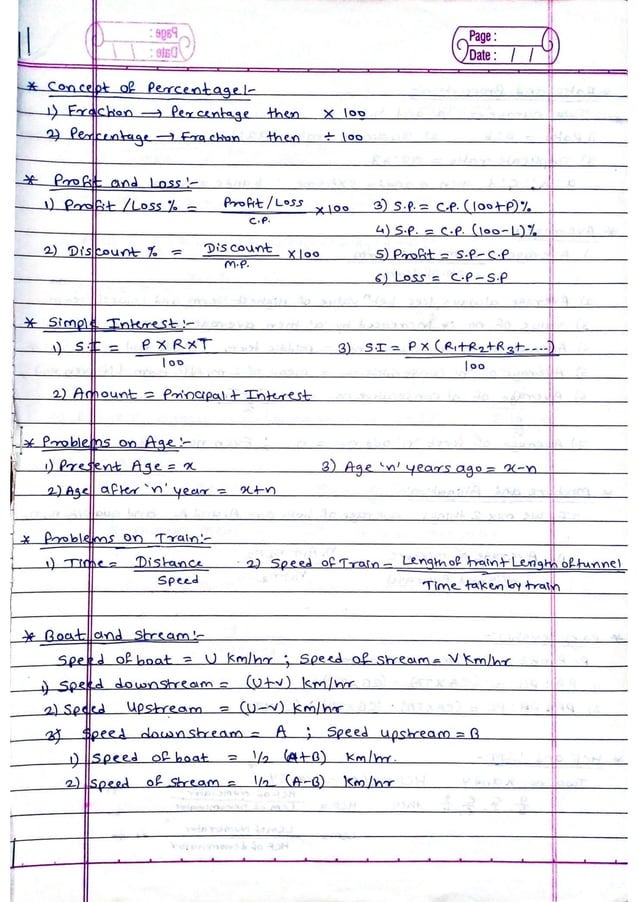 Page :
Date : / /
* Concept of Percentage!-
1) Fraction → Percentage then × 100
2) Percentage → Fraction then ÷ 100
* Profit and Loss:-
1) Profit / Loss % = Profit / Loss / C.P. × 100 3) S.P. = C.P. (100+P)%
4) S.P. = C.P. (100-L)%
2) Discount % = Discount / M.P. × 100 5) Profit = S.P-C.P
6) Loss = C.P-S.P
* Simple Interest:-
1) S.I = P × R × T / 100 3) S.I = P × (R1+R2+R3+----) / 100
2) Amount = Principal + Interest
* Problems on Age:-
1) Present Age = x 3) Age 'n' years ago = x-n
2) Age after 'n' year = x+n
* Problems on Train:-
1) Time = Distance / Speed 2) Speed of Train = Length of train + Length of tunnel / Time taken by train
* Boat and Stream:-
Speed of boat = U Km/hr ; Speed of stream = V Km/hr
1) Speed downstream = (U+V) Km/hr
2) Speed Upstream = (U-V) Km/hr
3) Speed downstream = A ; Speed upstream = B
1) Speed of boat = 1/2 (A+B) Km/hr.
2) Speed of stream = 1/2 (A-B) Km/hr